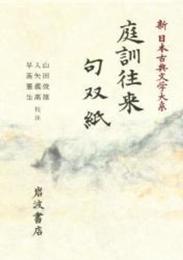 新日本古典文学大系
庭訓往来
句双紙
山田俊雄
入矢義高
早苗憲生
校注
岩波書店